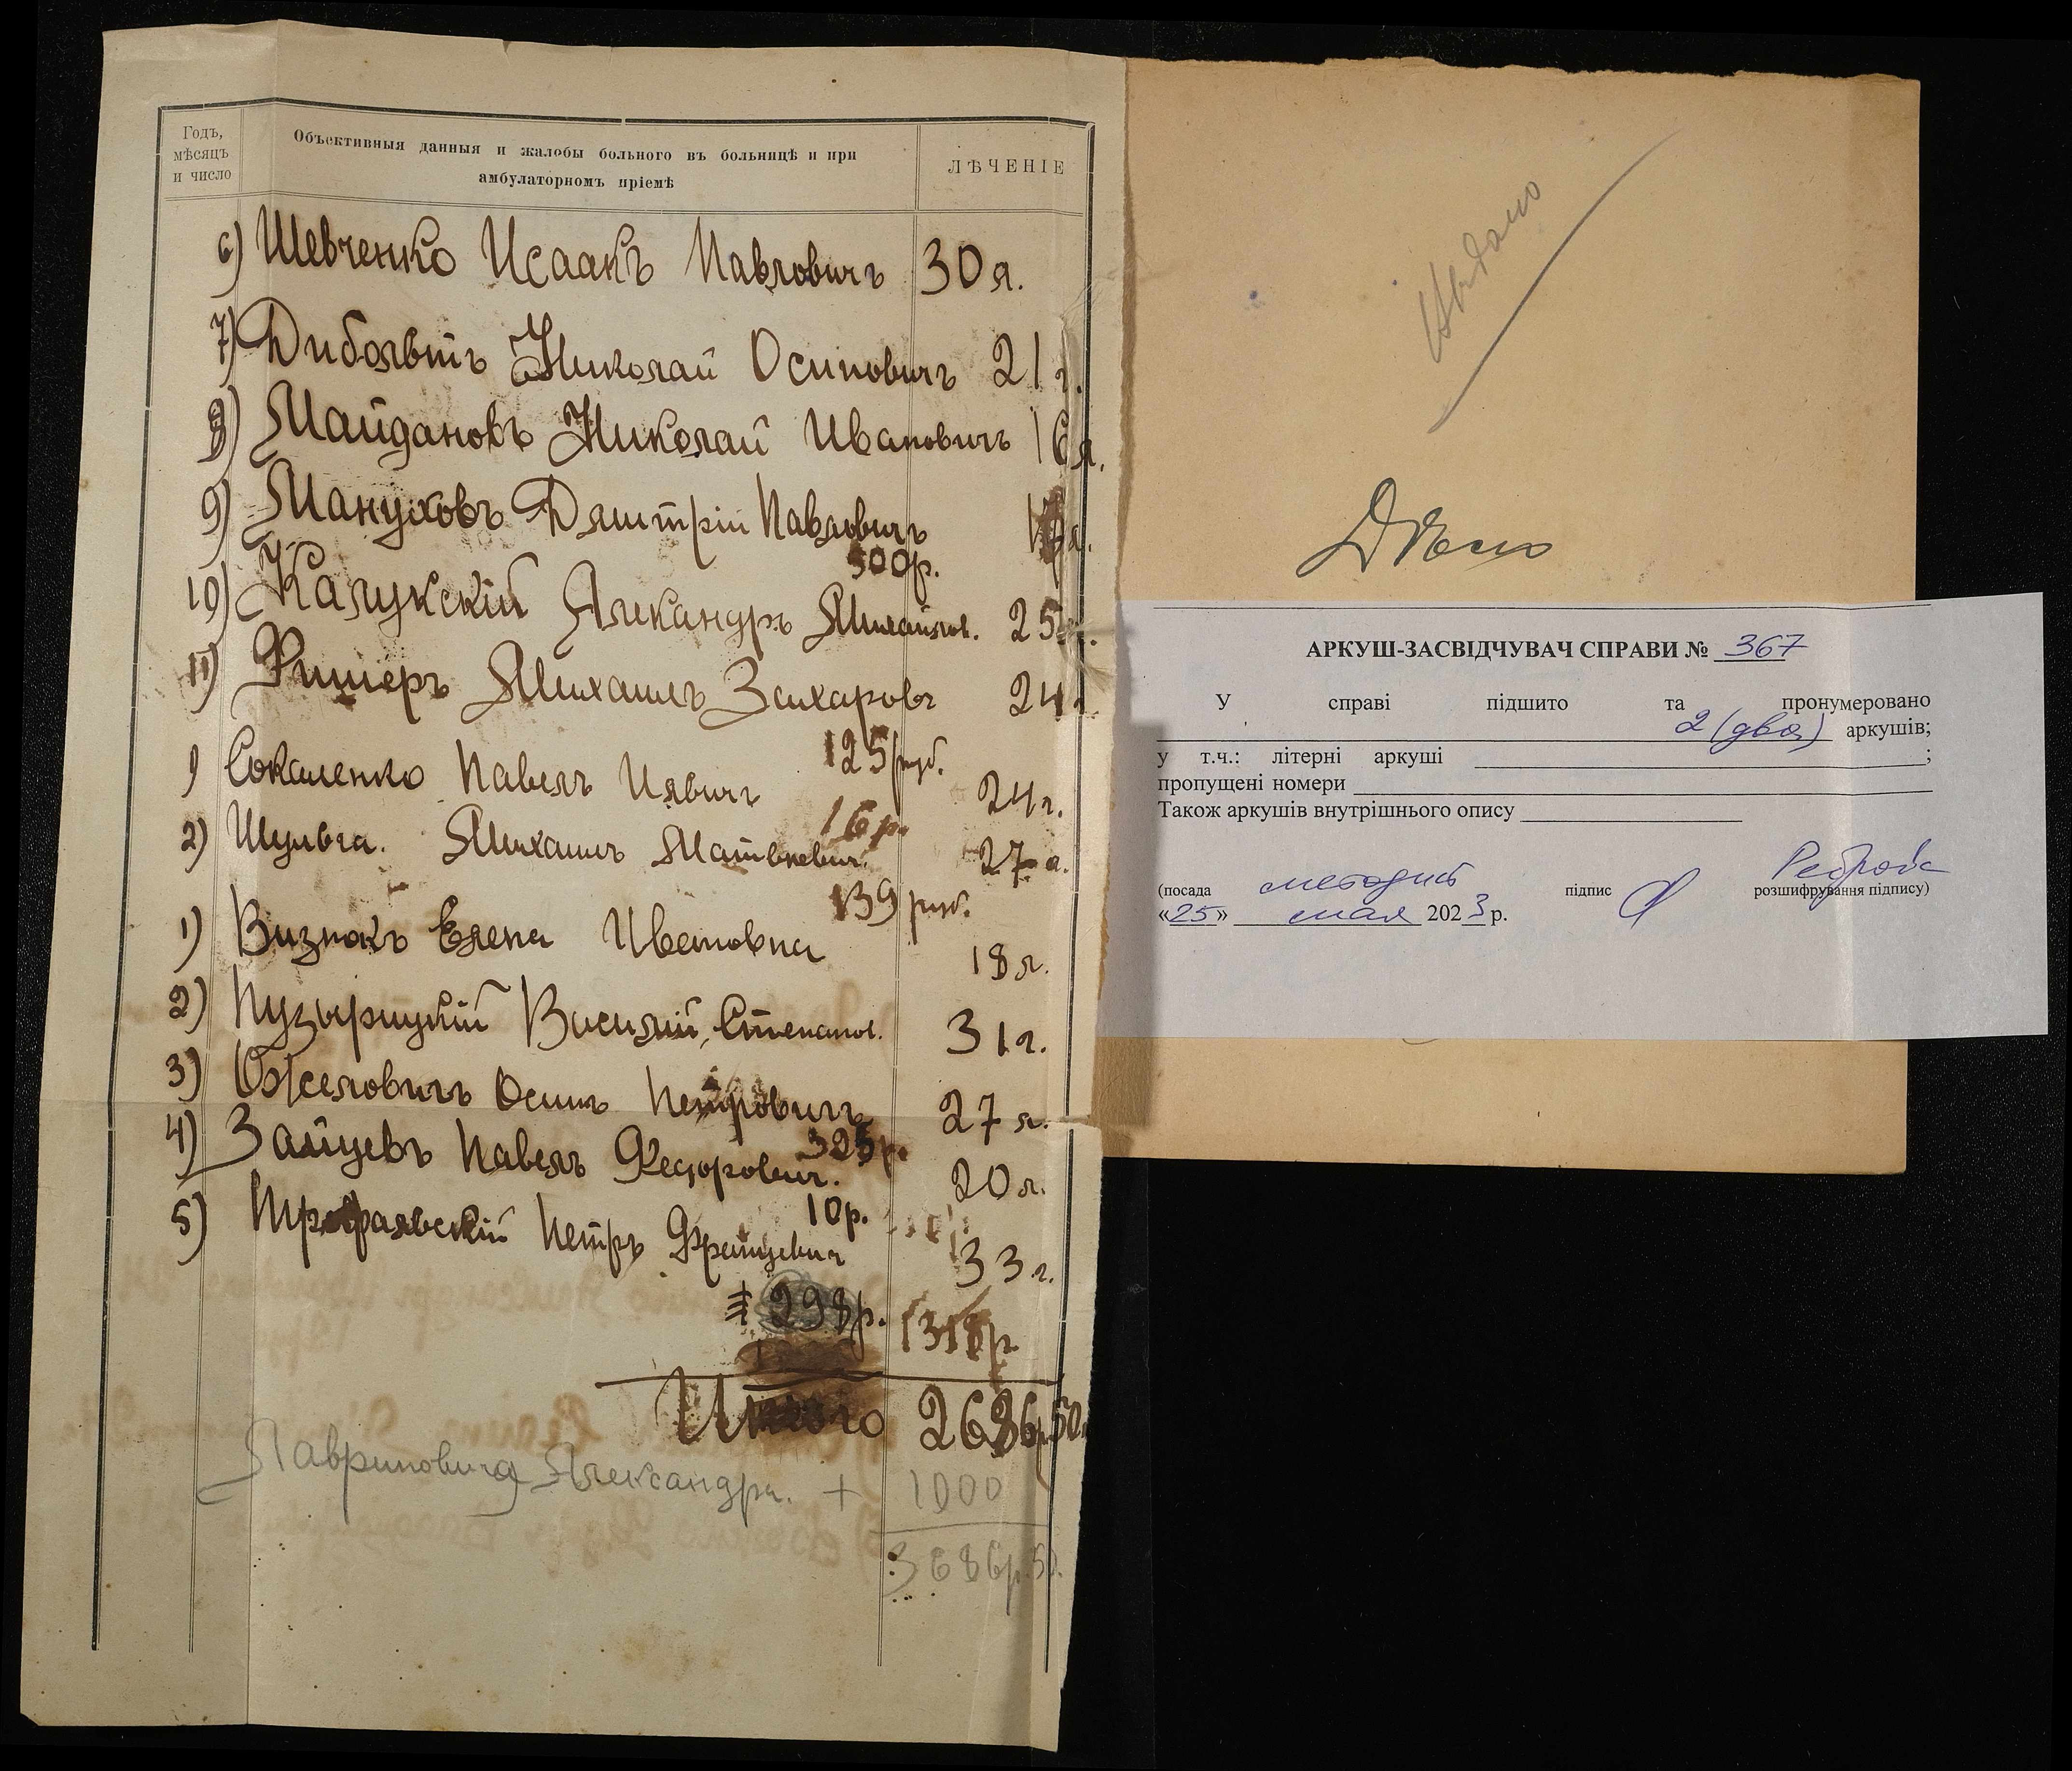 Годъ,
мѣсяцъ
и число
Объективныя данныя и жалобы больного въ больницѣ и при
амбулаторномъ пріемѣ
ЛѢЧЕНІЕ
6) Шевченко Исаакъ Павловичъ 30 л.
7) Николай Осиповичъ 21 г.
8) Майдановъ Николай Ивановичъ 16 л.
9) Мануховъ Дмитрій Павловичъ
500р.
10) Калужскій Александръ Михайлов. 25
11) Фишеръ Михаилъ Захаровъ 24
125 руб.
1) Сокаленко Павелъ Ильичъ 24 г.
16 р.
2) Шульга. Михаилъ Матвѣевич. 27 л.
139 руб.
1) Визнакъ Елена Ивановна 18 л.
2) Василій Степанов. 31 г.
3) Осипъ Петровичъ 27 л.
325р.
4) Зайцевъ Павелъ Федорович. 20 л.
10р.
5) Петръ Францевич 33 г.
298р. 1318р
Итого 2686р 50
Лавриновича Александра. + 1000
3686р. 50.
Дѣло
АРКУШ-ЗАСВІДЧУВАЧ СПРАВИ № 367
У справі підшито та пронумеровано
2 (два) аркушів;
у т.ч.: літерні аркуші ;
пропущені номери
Також аркушів внутрішнього опису
методист
(посада підпис розшифрування підпису)
«25» мая 2023 р.